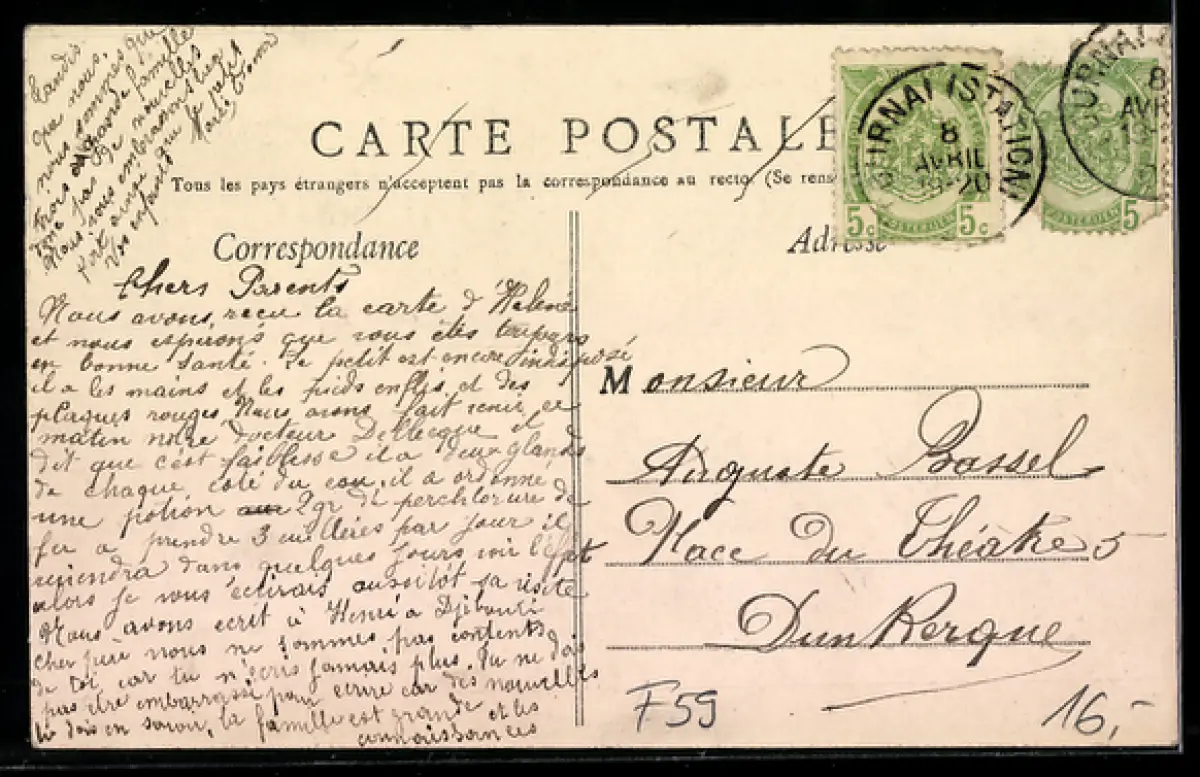 CARTE POSTALE
Tous les pays étrangers n'acceptent pas la correspondance au recto. (Se rens
Correspondance
Adresse
Chers Parents
Nous avons reçu la carte d'Helene
et nous espérons que vous êtes toujours
en bonne santé. Le petit est encore indisposé
il a les mains et les pieds enflés et des
plaques rouges, Nous avons fait venir ce
matin notre docteur Dellecque et il
dit que c'est faiblesse il a deux glands
de chaque côté du cou, il a ordonné
une potion 2gr de perchlorure de
fer a prendre 3 cuillères par jour il
reviendra dans quelques jours voir l'effet
alors je vous écrirais aussitôt sa visite
Nous avons ecrit à Henri a Djibouti
cher père nous ne sommes pas contents
de toi car tu n'ecris jamais plus. Tu ne dois
pas être embarrassé pour ecrire car des nouvelles
tu dois en savoir, la famille est grande et les
connaissances
tandis
que nous,
nous sommes que
trois grande famille
pas de nouvelles
Nous vous embrassons bien
fort ainsi que le petit
Vos enfants
Monsieur
Auguste Bassel
Place du Théâtre 5
Dunkerque
F59
16,-
TOURNAI (STATION)
8
AVRIL
19-20
5c 5c
TOURNAI
8
AVR
5